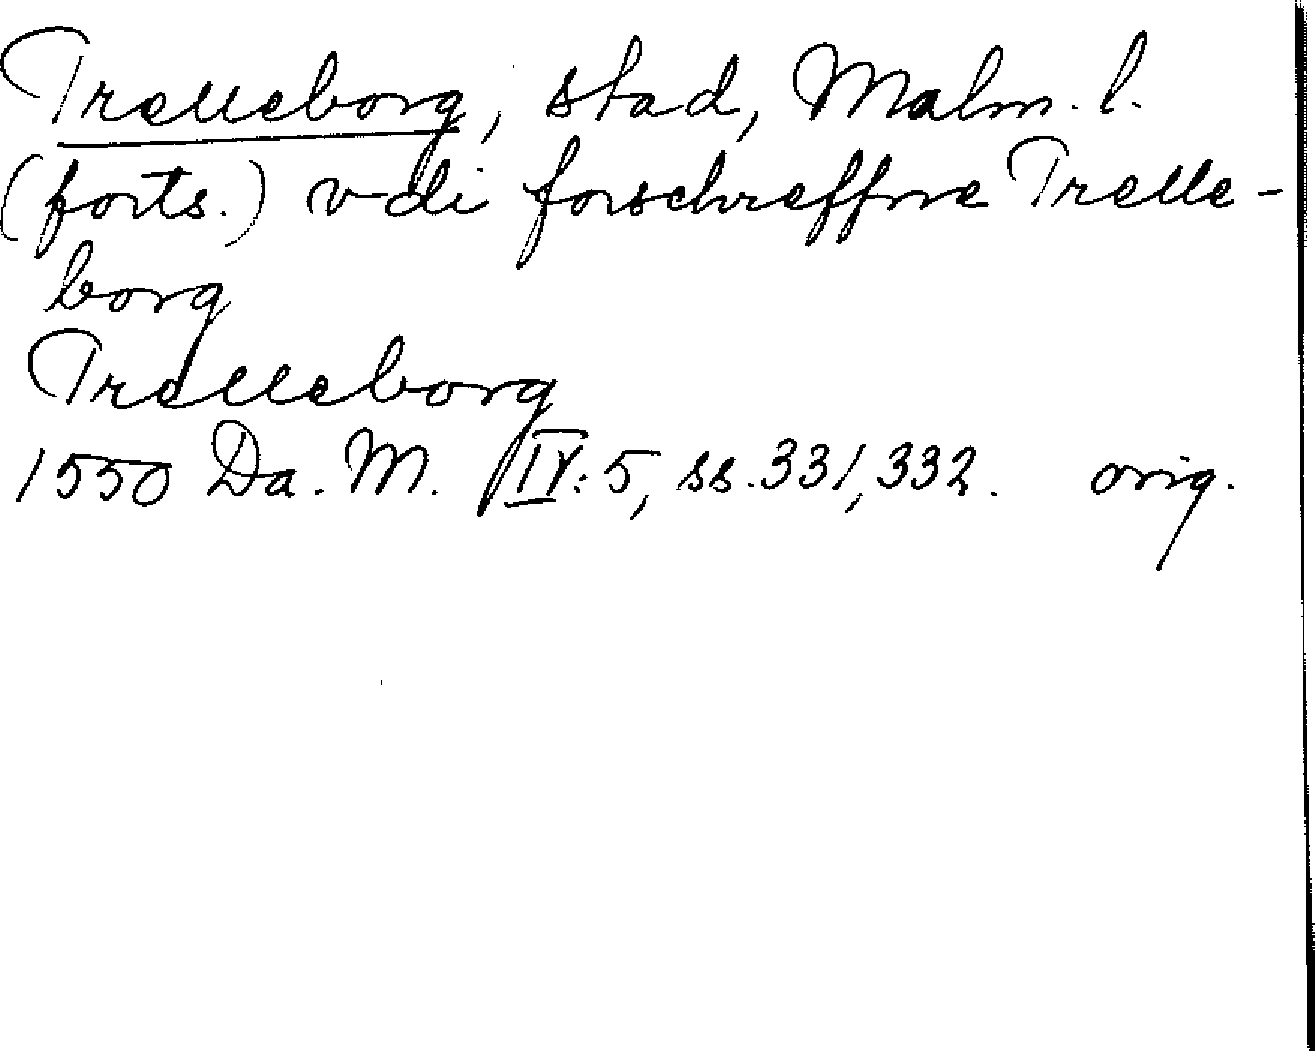 Trelleborg, stad, Malm. l.
(forts.) vdi forschreffne Trelle-
borg
Trelleborg
1550 Da. M. IV: 5, ss. 331, 332. orig.